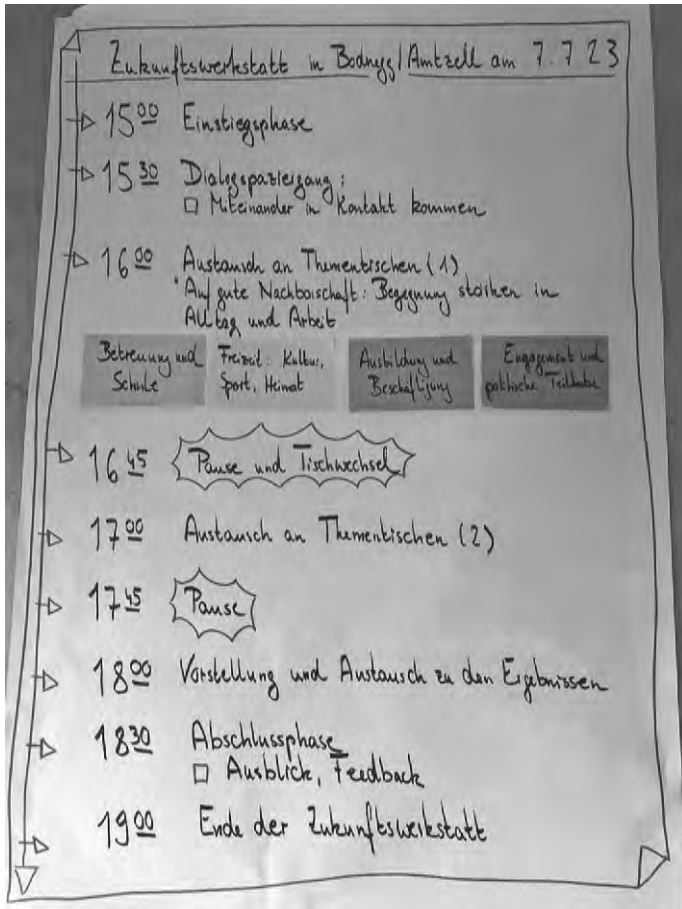 Zukunftswerkstatt in Bodnegg/Amtzell am 7.7 23
15 00 Einstiegsphase
15 30 Dialogspaziergang:
□ Miteinander in Kontakt kommen
16 00 Austausch an Thementischen (1)
"Auf gute Nachbarschaft: Begegnung stärken in
Alltag und Arbeit
Betreuung und
Schule
Freizeit: Kultur,
Sport, Heimat
Ausbildung und
Beschäftigung
Engagement und
politische Teilhabe
16 45 Pause und Tischwechsel
17 00 Austausch an Thementischen (2)
17 45 Pause
18 00 Vorstellung und Austausch zu den Ergebnissen
18 30 Abschlussphase
□ Ausblick, Feedback
19 00 Ende der Zukunftswerkstatt